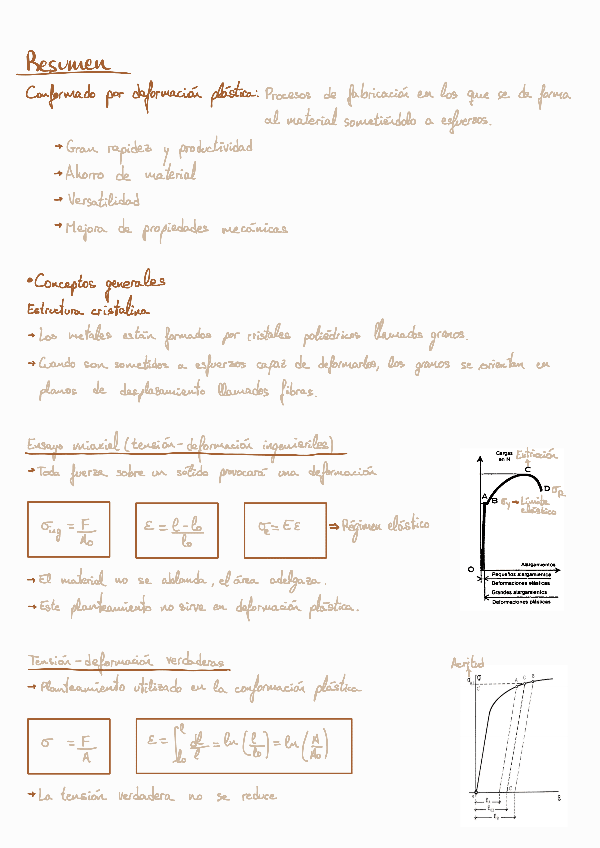 Resumen
Conformado por deformación plástica: Procesos de fabricación en los que se da forma
al material sometiéndolo a esfuerzos.
→ Gran rapidez y productividad
→ Ahorro de material
→ Versatilidad
→ Mejora de propiedades mecánicas
• Conceptos generales
Estructura cristalina
→ Los metales están formados por cristales poliédricos llamados granos.
→ Cuando son sometidos a esfuerzos capaz de deformarlos, los granos se orientan en
planos de desplazamiento llamados fibras.
Ensayo uniaxial (tensión-deformación ingenieriles)
→ Toda fuerza sobre un sólido provocará una deformación
σ_ing = F/A₀
ε = l-l₀/l₀
σ_E = E ε ⇒ Régimen elástico
→ El material no se ablanda, el área adelgaza.
→ Este planteamiento no sirve en deformación plástica.
Cargas en N
Estricción
C
D σ_R
A
B σy → Límite elástico
O
Alargamientos
Pequeños alargamientos
Deformaciones elásticas
Grandes alargamientos
Deformaciones plásticas
Tensión-deformación verdaderas
→ Planteamiento utilizado en la conformación plástica
σ = F/A
ε = ∫ l₀ l dl/l = ln (l/l₀) = ln (A/A₀)
→ La tensión verdadera no se reduce
Acritud
σ
A
B
ε